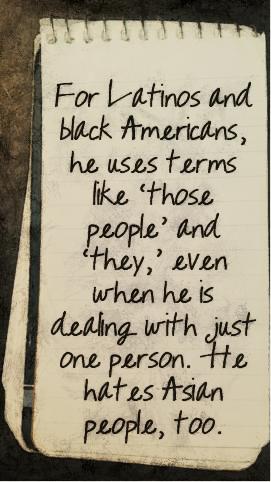 For Latinos and
black Americans,
he uses terms
like 'those
people' and
'they,' even
when he is
dealing with just
one person. He
hates Asian
people, too.